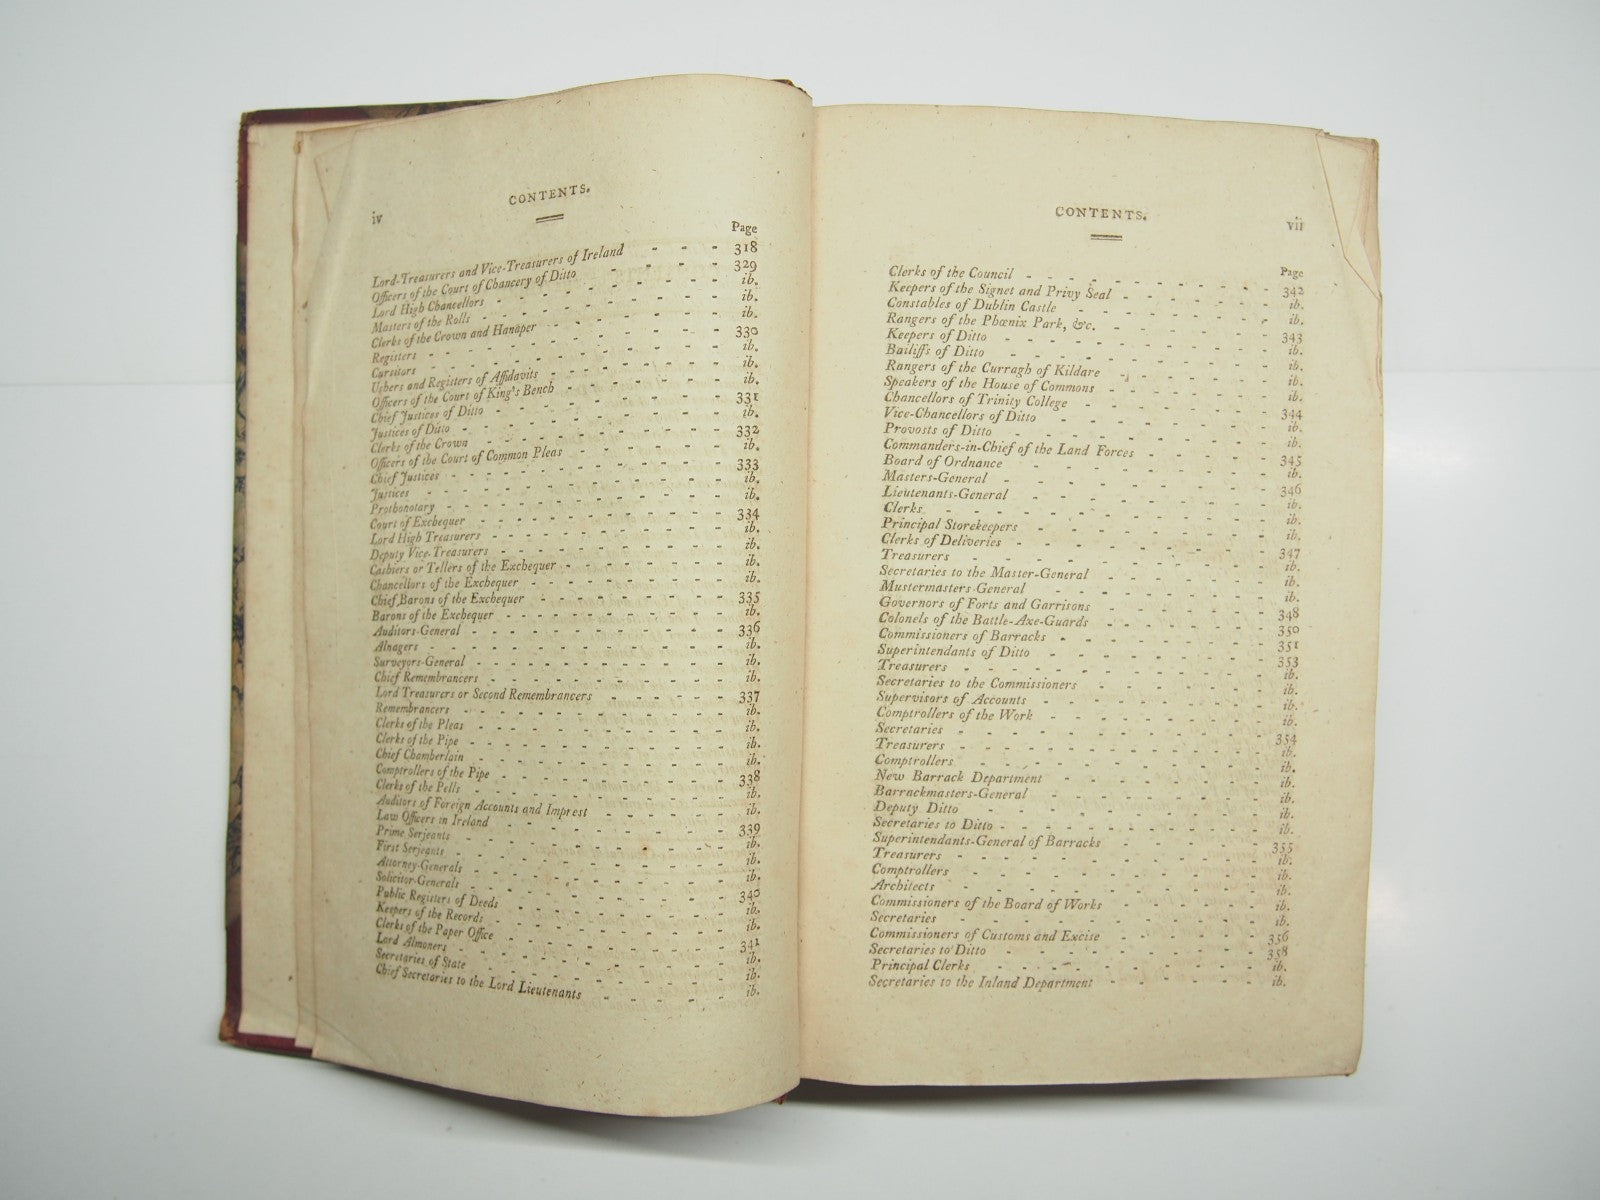 iv
CONTENTS.
Page
Lord-Treasurers and Vice-Treasurers of Ireland - - - 318
Officers of the Court of Chancery of Ditto - - - - 329
Lord High Chancellors - - - - - - - ib.
Masters of the Rolls - - - - - - - ib.
Clerks of the Crown and Hanaper - - - - - ib.
Registers - - - - - - - - - 330
Cursitors - - - - - - - - - ib.
Ushers and Registers of Affidavits - - - - - ib.
Officers of the Court of King's Bench - - - - - ib.
Chief Justices of Ditto - - - - - - - 331
Justices of Ditto - - - - - - - - ib.
Clerks of the Crown - - - - - - - 332
Officers of the Court of Common Pleas - - - - - ib.
Chief Justices - - - - - - - - 333
Justices - - - - - - - - - ib.
Prothonotary - - - - - - - - ib.
Court of Exchequer - - - - - - - 334
Lord High Treasurers - - - - - - - ib.
Deputy Vice-Treasurers - - - - - - - ib.
Cashiers or Tellers of the Exchequer - - - - - ib.
Chancellors of the Exchequer - - - - - - ib.
Chief Barons of the Exchequer - - - - - - 335
Barons of the Exchequer - - - - - - - ib.
Auditors-General - - - - - - - - 336
Alnagers - - - - - - - - - ib.
Surveyors-General - - - - - - - - ib.
Chief Remembrancers - - - - - - - ib.
Lord Treasurers or Second Remembrancers - - - - 337
Remembrancers - - - - - - - - ib.
Clerks of the Pleas - - - - - - - ib.
Clerks of the Pipe - - - - - - - ib.
Chief Chamberlain - - - - - - - ib.
Comptrollers of the Pipe - - - - - - - 338
Clerks of the Pells - - - - - - - ib.
Auditors of Foreign Accounts and Imprest - - - - ib.
Law Officers in Ireland - - - - - - - 339
Prime Serjeants - - - - - - - - ib.
First Serjeants - - - - - - - - ib.
Attorney-Generals - - - - - - - - ib.
Solicitor-Generals - - - - - - - - 340
Public Registers of Deeds - - - - - - ib.
Keepers of the Records - - - - - - - ib.
Clerks of the Paper Office - - - - - - 341
Lord Almoners - - - - - - - - ib.
Secretaries of State - - - - - - - ib.
Chief Secretaries to the Lord Lieutenants - - - - ib.
CONTENTS.
vii
Page
Clerks of the Council - - - - - - - 342
Keepers of the Signet and Privy Seal - - - - - ib.
Constables of Dublin Castle - - - - - - ib.
Rangers of the Phœnix Park, &c. - - - - - 343
Keepers of Ditto - - - - - - - - ib.
Bailiffs of Ditto - - - - - - - - ib.
Rangers of the Curragh of Kildare - - - - - ib.
Speakers of the House of Commons - - - - - ib.
Chancellors of Trinity College - - - - - - 344
Vice-Chancellors of Ditto - - - - - - - ib.
Provosts of Ditto - - - - - - - - ib.
Commanders-in-Chief of the Land Forces - - - - 345
Board of Ordnance - - - - - - - ib.
Masters-General - - - - - - - - 346
Lieutenants-General - - - - - - - ib.
Clerks - - - - - - - - - ib.
Principal Storekeepers - - - - - - - ib.
Clerks of Deliveries - - - - - - - 347
Treasurers - - - - - - - - - ib.
Secretaries to the Master-General - - - - - ib.
Mustermasters-General - - - - - - - ib.
Governors of Forts and Garrisons - - - - - 348
Colonels of the Battle-Axe-Guards - - - - - 350
Commissioners of Barracks - - - - - - 351
Superintendants of Ditto - - - - - - - 353
Treasurers - - - - - - - - - ib.
Secretaries to the Commissioners - - - - - ib.
Supervisors of Accounts - - - - - - - ib.
Comptrollers of the Work - - - - - - ib.
Secretaries - - - - - - - - - 354
Treasurers - - - - - - - - - ib.
Comptrollers - - - - - - - - ib.
New Barrack Department - - - - - - ib.
Barrackmasters-General - - - - - - - ib.
Deputy Ditto - - - - - - - - ib.
Secretaries to Ditto - - - - - - - - ib.
Superintendants-General of Barracks - - - - - 355
Treasurers - - - - - - - - - ib.
Comptrollers - - - - - - - - ib.
Architects - - - - - - - - - ib.
Commissioners of the Board of Works - - - - - ib.
Secretaries - - - - - - - - - ib.
Commissioners of Customs and Excise - - - - - 356
Secretaries to Ditto - - - - - - - - 358
Principal Clerks - - - - - - - - ib.
Secretaries to the Inland Department - - - - - ib.